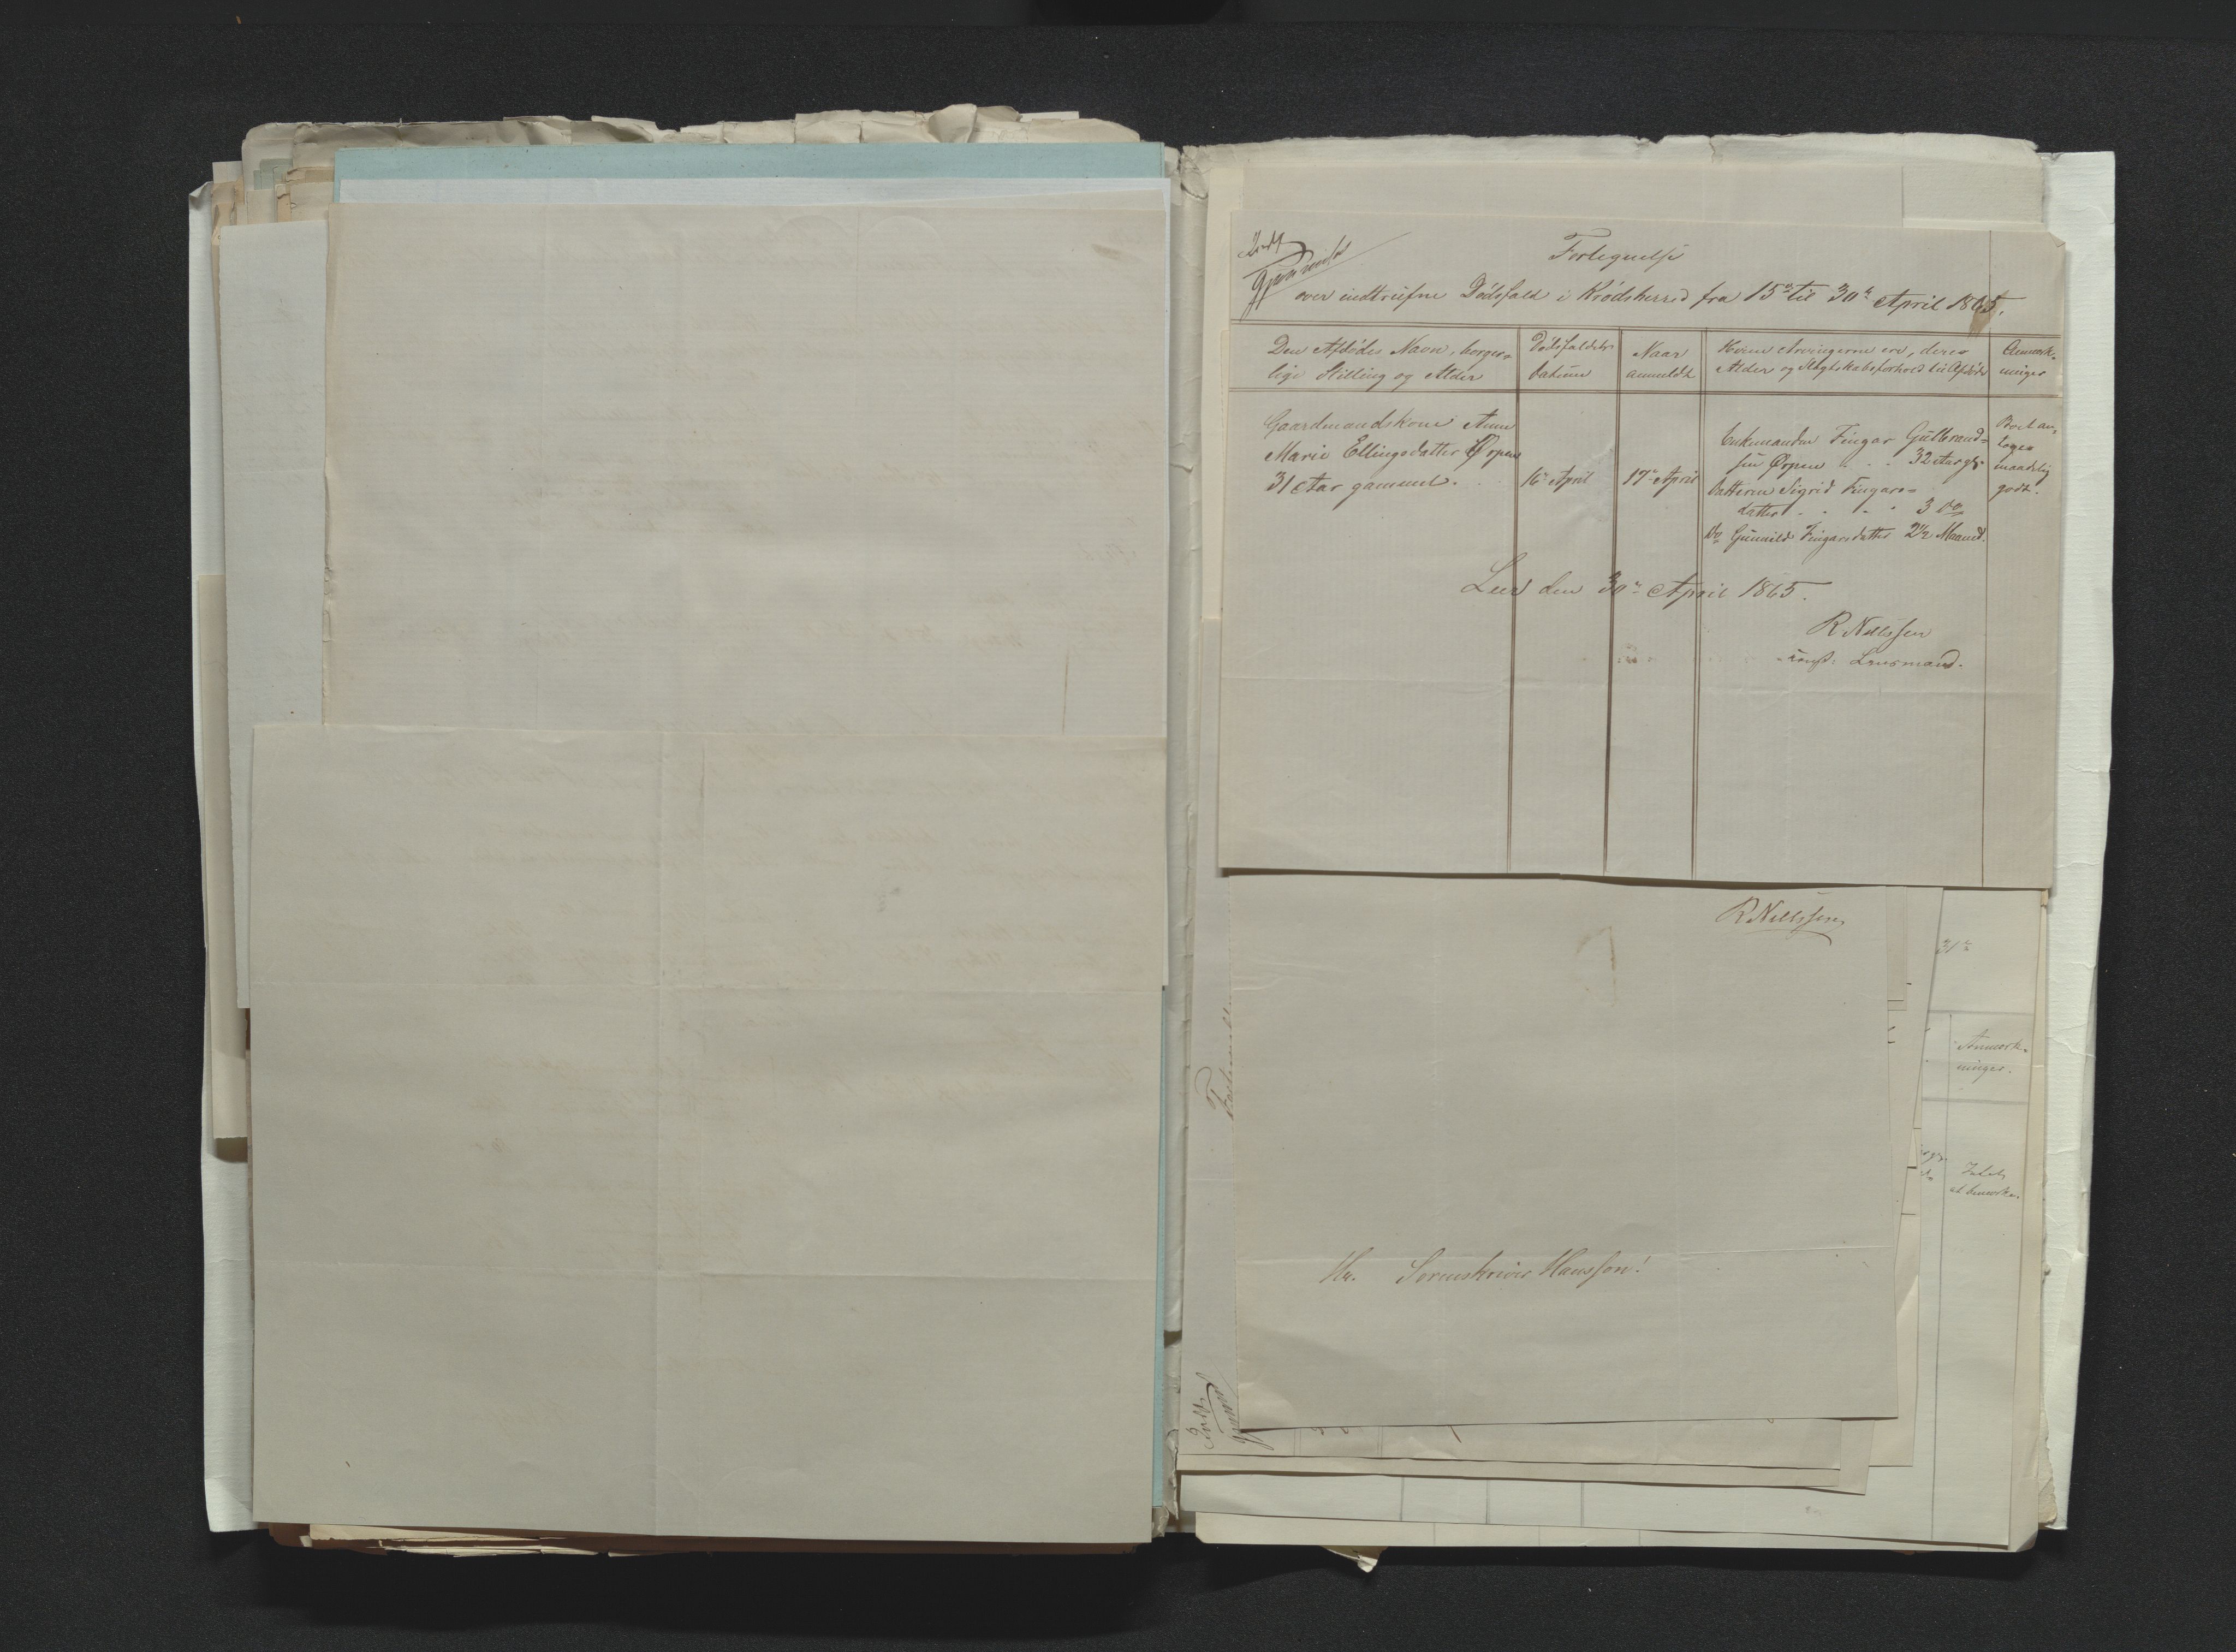 Indf
Fortegnelse
over indtrufne Dødsfald i Krødsherred fra 15de til 30te April 1865.
Den Afdødes Navn, borger=
lige Stilling og Alder
Dødsfaldets
Datum
Naar
anmeldt
Hvem Arvingerne ere, deres
Alder og Slægtskabsforhold til Afdøde
Anmærk=
ninger
Gaardmandskone Anne
Marie Ellingsdatter Ørpen
31 Aar gammel.
16de April
17de April
Enkemanden Fingar Gulbrand=
sen Ørpen 32 Aar gl.
Datteren Sigrid Fingars=
datter 3 do
do Gunnild Fingarsdatter 2½ Maaned.
Boet an=
tages
maadelig
godt.
Leer den 30te April 1865.
R Nilssen
const: Lensmand.
R Nilssen
31te
Anmærk=
ninger.
Intet
at bemærke.
Hr. Sorenskriver Hansson!